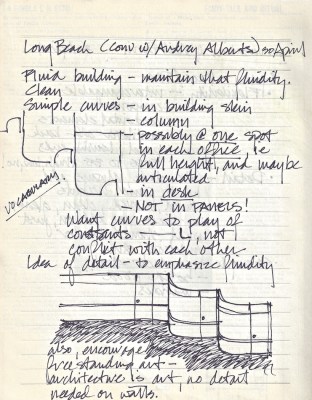 Long Beach (Conv w/ Audrey Alberts) 30 April
Fluid building - maintain that fluidity.
Clean
Simple curves - in building skin
- column
- possibly @ one spot
in each office, i.e
full height, and maybe
articulated
- in desk
- NOT in PANELS!
VOCABULARY!
Want curves to play of
constraints - not
conflict with each other
Idea of detail - to emphasize fluidity
also, encourage
free standing art -
architecture is art, no detail
needed on walls.